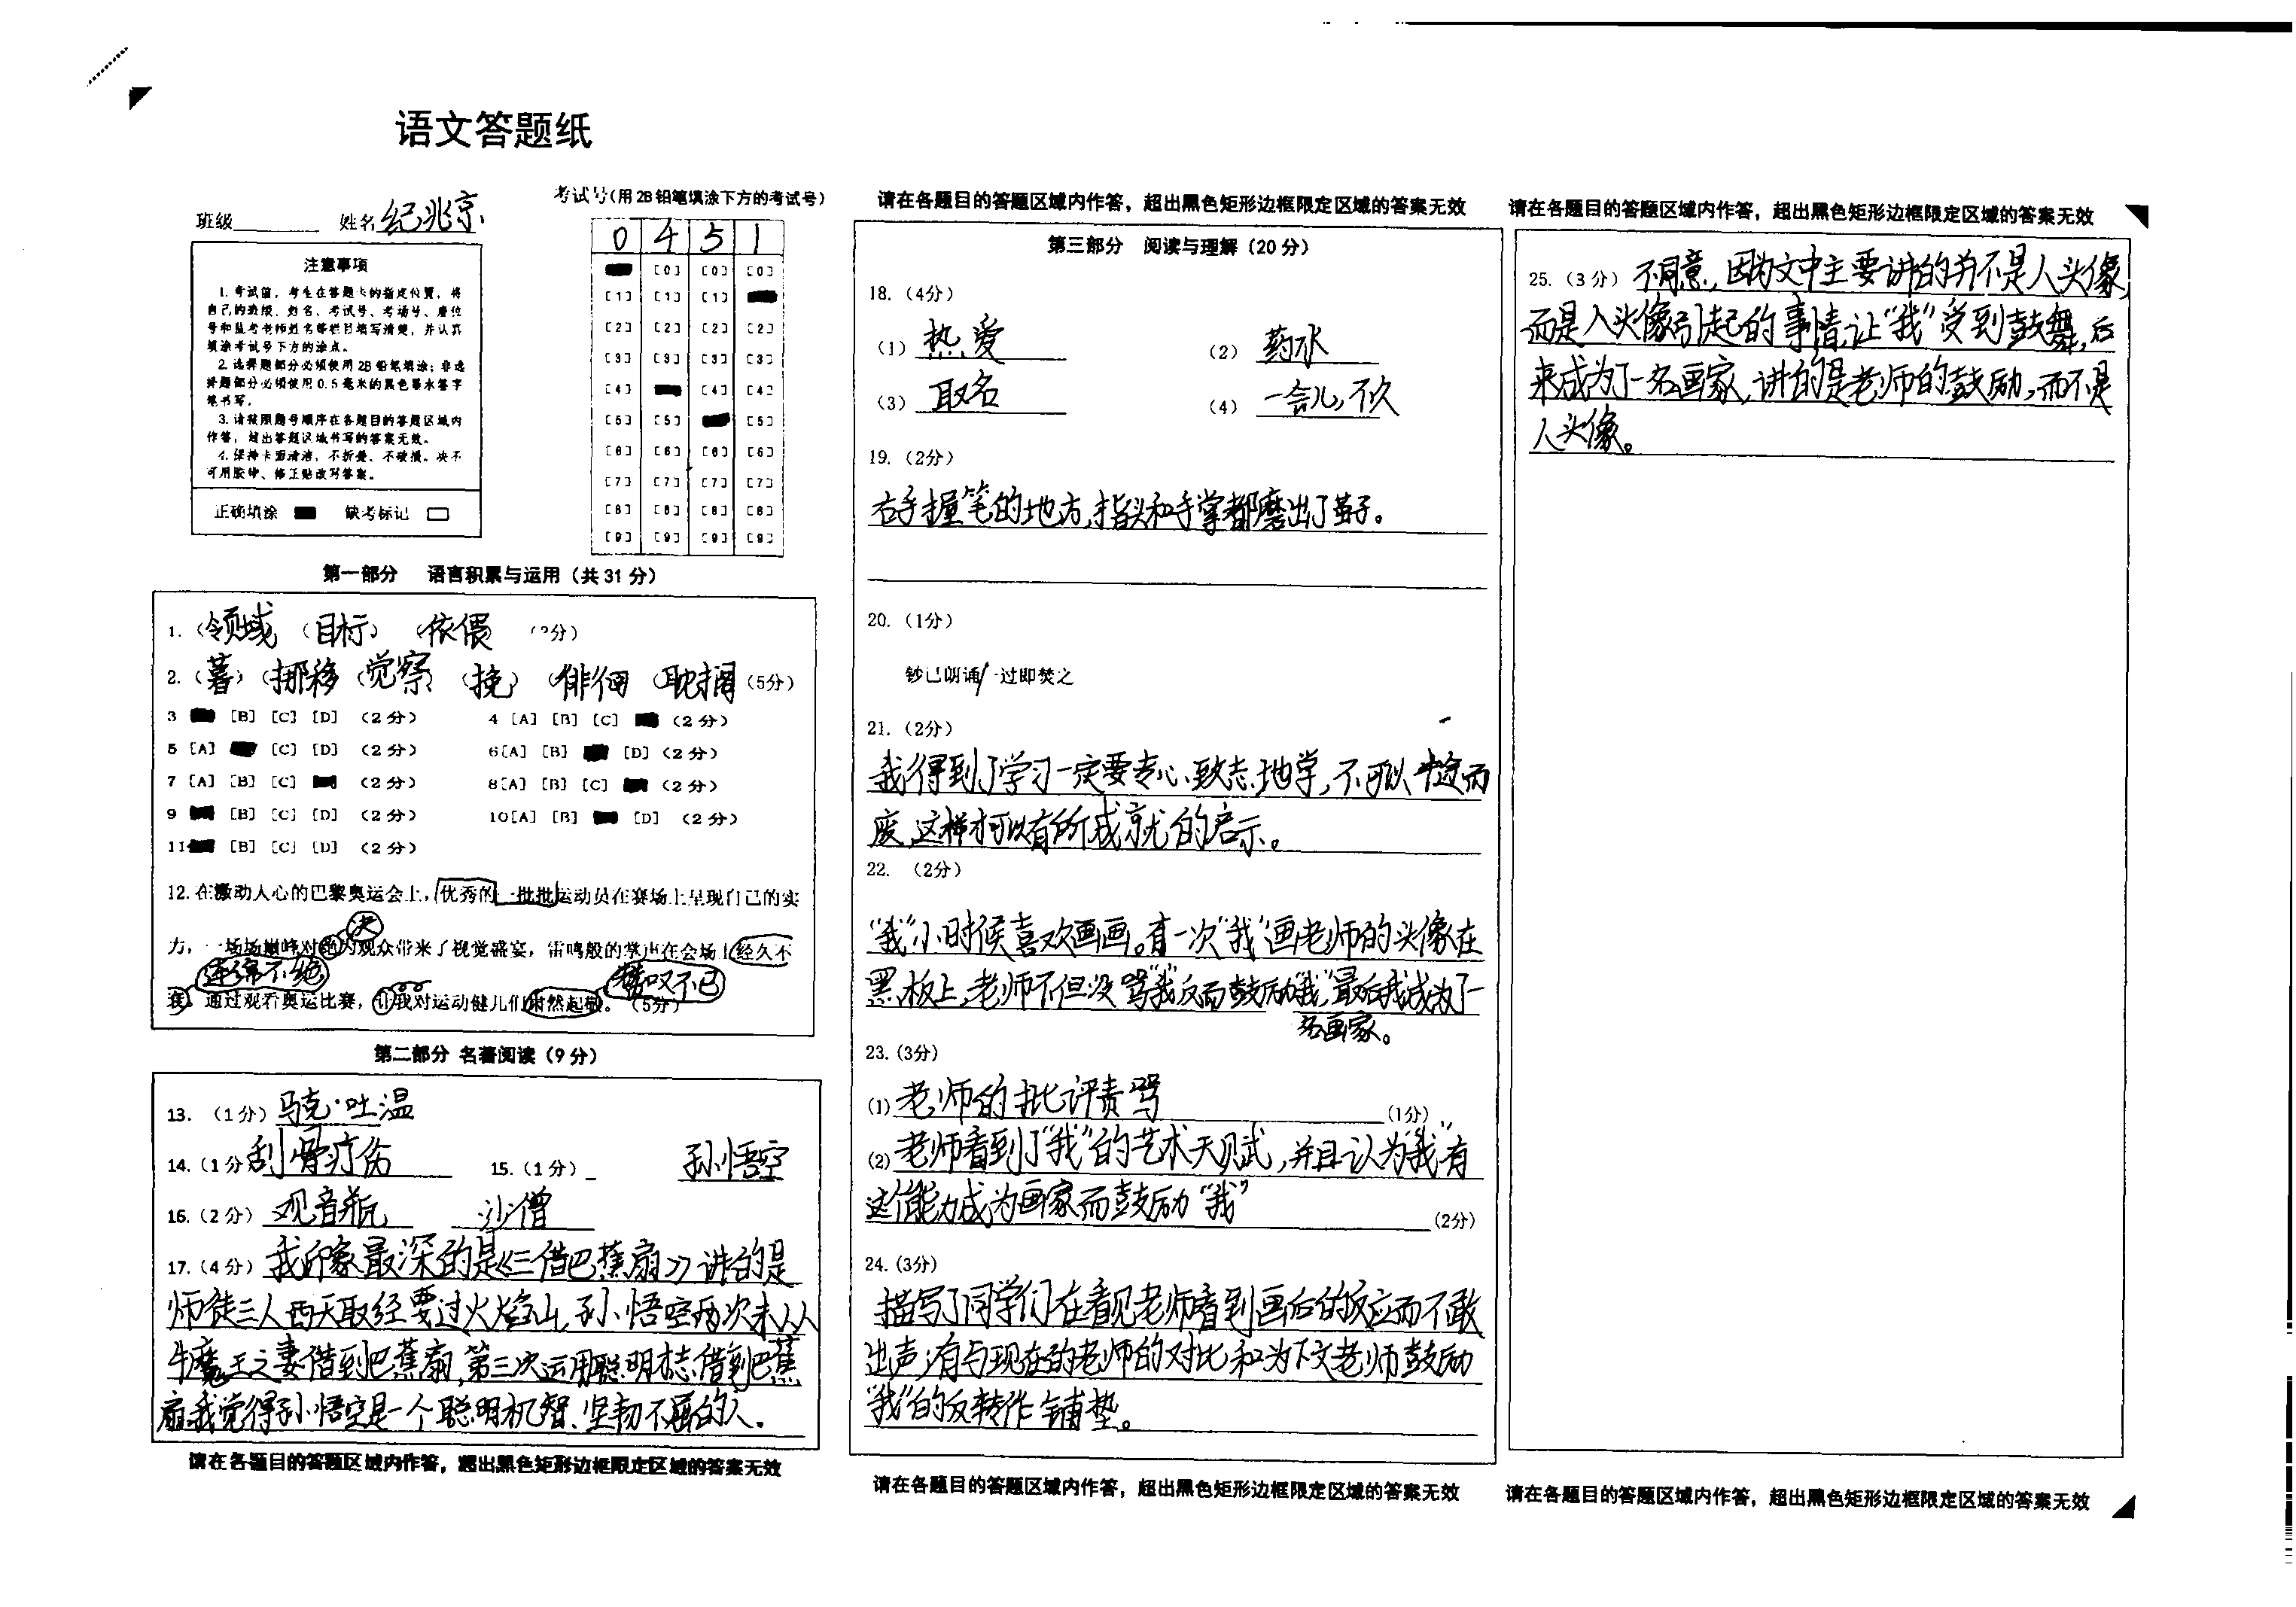 语文答题纸
班级 姓名 纪兆京
考试号(用2B铅笔填涂下方的考试号)
0 4 5 1
[0] [0] [0]
[1] [1] [1]
[2] [2] [2] [2]
[3] [3] [3] [3]
[4] [4] [4]
[5] [5] [5]
[6] [6] [6] [6]
[7] [7] [7] [7]
[8] [8] [8] [8]
[9] [9] [9] [9]
注意事项
1.考试前,考生在答题卡的指定位置,将
自己的班级、姓名、考试号、考场号、座位
号和监考老师姓名等栏目填写清楚,并认真
填涂考试号下方的涂点。
2.选择题部分必须使用2B铅笔填涂;非选
择题部分必须使用0.5毫米的黑色墨水签字
笔书写。
3.请按照题号顺序在各题目的答题区域内
作答,超出答题区域书写的答案无效。
4.保持卡面清洁,不折叠、不破损。决不
可用胶带、修正贴改写答案。
正确填涂 缺考标记
第一部分 语言积累与运用(共31分)
1.(领域)(目标)(依偎)
2.(著)(挪移)(觉察)(挽)(徘徊)(耽搁)(5分)
3 [B] [C] [D] (2分) 4 [A] [B] [C] (2分)
5 [A] [C] [D] (2分) 6[A] [B] [D] (2分)
7 [A] [B] [C] (2分) 8[A] [B] [C] (2分)
9 [B] [C] [D] (2分) 10[A] [B] [D] (2分)
11 [B] [C] [D] (2分)
12.在激动人心的巴黎奥运会上,优秀的一批批运动员在赛场上呈现自己的实
决
力,一场场巅峰对绝为观众带来了视觉盛宴,雷鸣般的掌声在会场上经久不
连绵不绝 赞叹不已
衰。通过观看奥运比赛,让我对运动健儿们肃然起敬。(5分)
第二部分 名著阅读(9分)
13.(1分)马克·吐温
14.(1分)刮骨疗伤 15.(1分) 孙悟空
16.(2分)观音瓶 沙僧
17.(4分)我印象最深的是《三借巴蕉扇》讲的是
师徒三人西天取经要过火焰山,孙悟空两次未从
牛魔王之妻借到巴蕉扇,第三次运用聪明才志借到巴蕉
扇我觉得孙悟空是一个聪明机智、坚韧不屈的人.
请在各题目的答题区域内作答,超出黑色矩形边框限定区域的答案无效
请在各题目的答题区域内作答,超出黑色矩形边框限定区域的答案无效
第三部分 阅读与理解(20分)
18.(4分)
(1) 热爱 (2) 药水
(3) 取名 (4) 一会儿,不久
19.(2分)
右手握笔的地方,指头和手掌都磨出了茧子。
20.(1分)
钞已朗诵/一过即焚之
21.(2分)
我得到了学习一定要专心致志地学,不可以半途而
废,这样才可以有所成就的启示。
22.(2分)
“我”小时候喜欢画画。有一次“我”画老师的头像在
黑板上,老师不但没骂“我”反而鼓励“我”,最后我成为了一
名画家。
23.(3分)
(1)老师的批评责骂(1分)
(2)老师看到了“我”的艺术天赋,并且认为“我”有
这个能力成为画家而鼓励“我”(2分)
24.(3分)
描写了同学们在看见老师看到画后的反应而不敢
出声;有与现在的老师的对比和为下文老师鼓励
“我”的反转作铺垫。
请在各题目的答题区域内作答,超出黑色矩形边框限定区域的答案无效
请在各题目的答题区域内作答,超出黑色矩形边框限定区域的答案无效
25.(3分)不同意,因为文中主要讲的并不是人头像,
而是人头像引起的事情,让“我”受到鼓舞,后
来成为了一名画家,讲的是老师的鼓励,而不是
人头像。
请在各题目的答题区域内作答,超出黑色矩形边框限定区域的答案无效